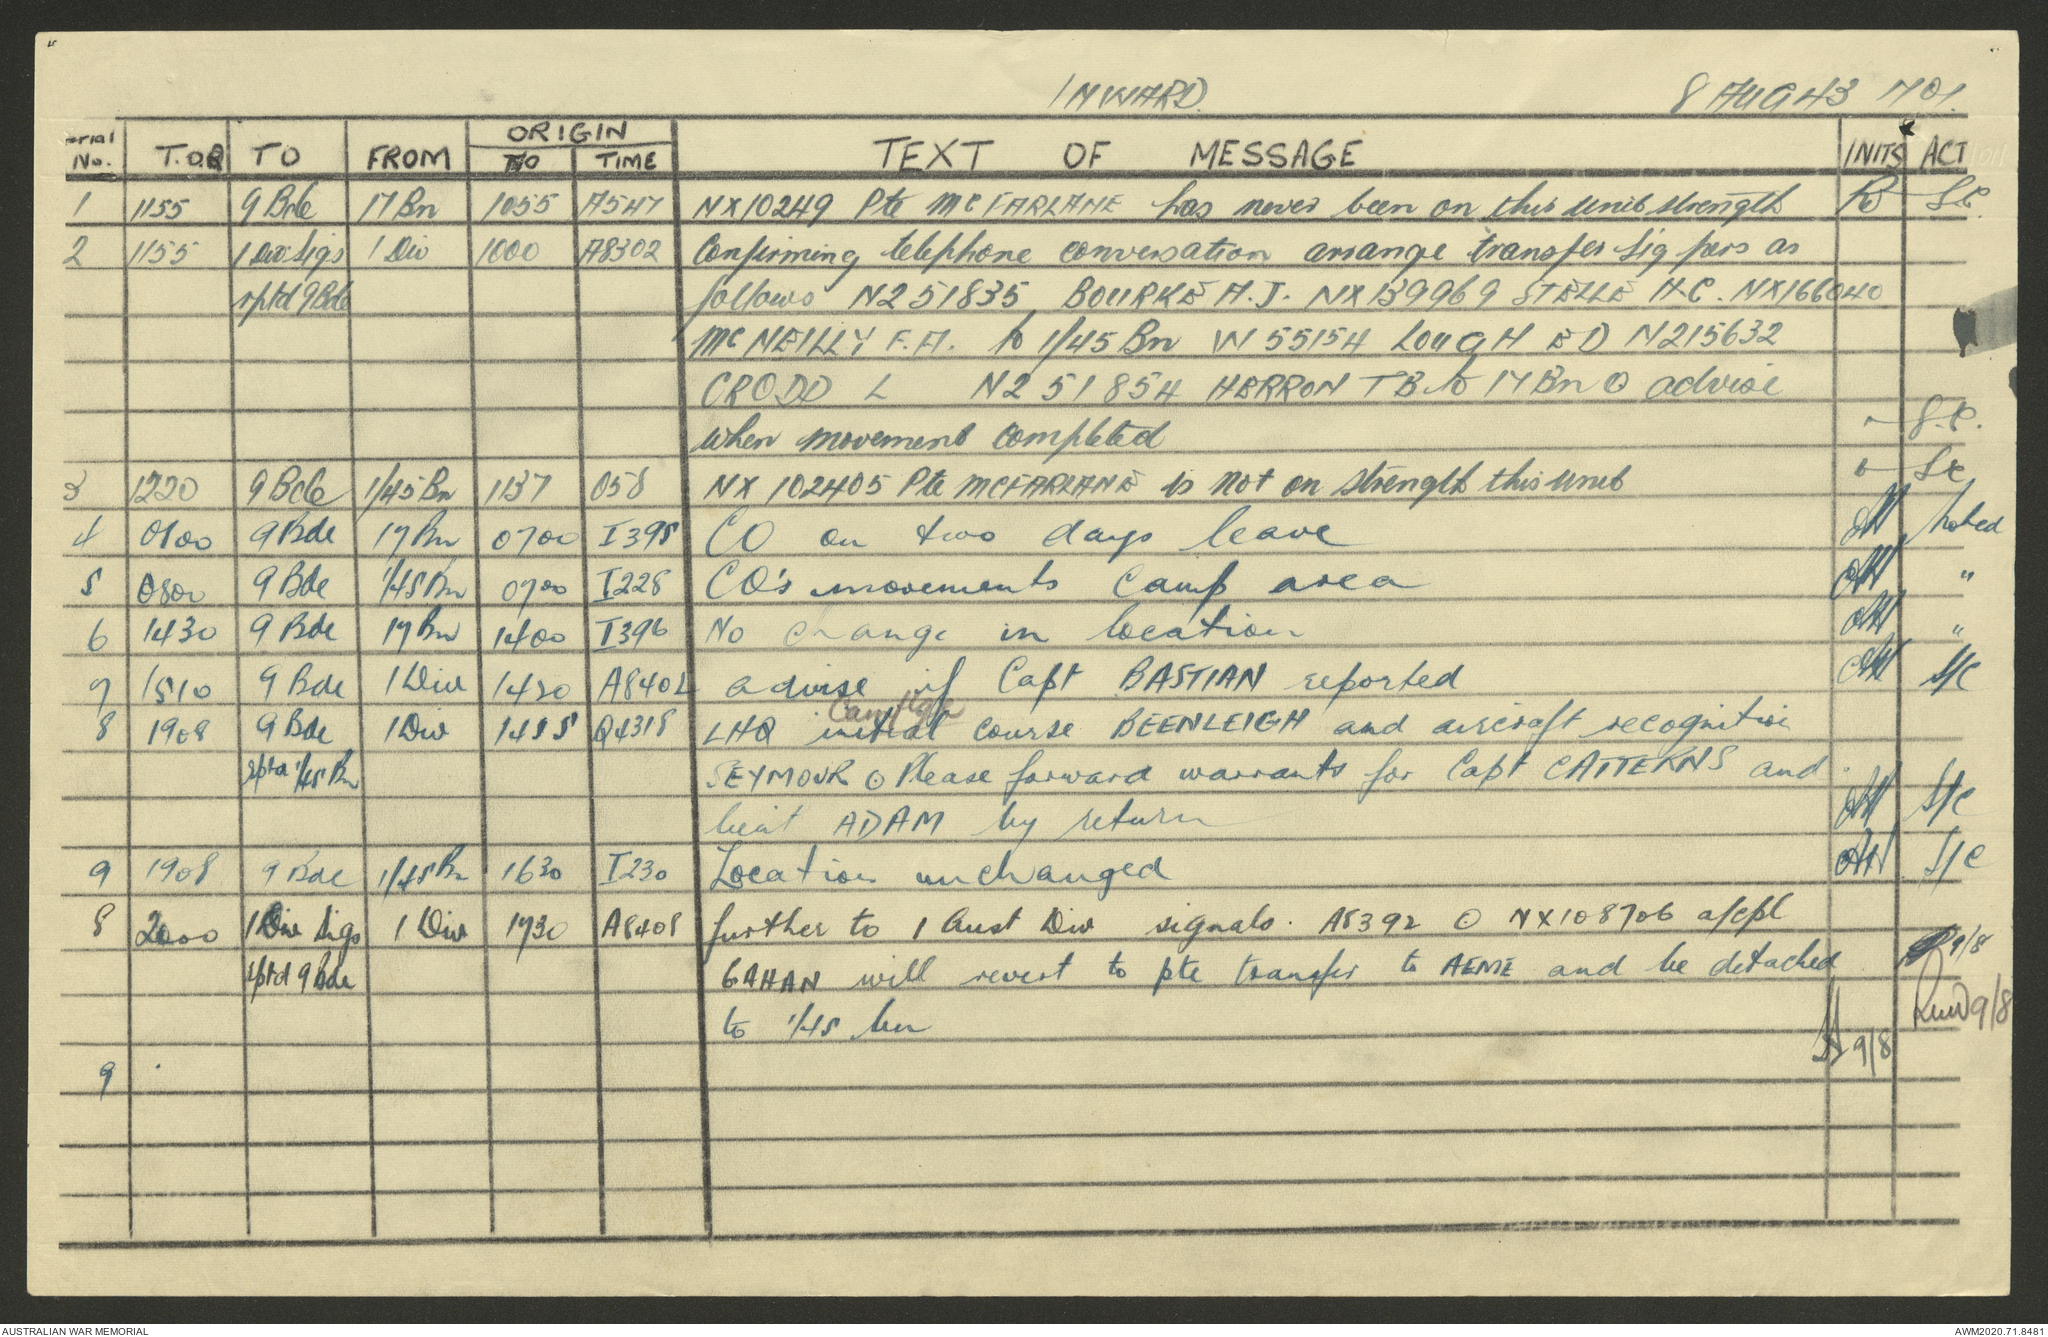 INWARD. 8 AUG 43 1701.
erial No. T.O.R TO FROM ORIGIN NO TIME TEXT OF MESSAGE INITS ACT
1 1155 9 Bde 17 Bn 1055 A547 NX10249 Pte McFARLANE has never been on this unit strength S.C.
2 1155 1 Div Sigs 1 Div 1000 A8302 Confirming telephone conversation arrange transfer sig pers as
rptd 9 Bde follows N251835 BOURKE A.J. NX139969 STELLE H.C. NX166040
McNEILLY F.A. to 1/45 Bn W55154 LOUGH E D N215632
CRODD L N251854 HERRON T B to 17 Bn ⊙ advise
when movement completed S.C.
3 1220 9 Bde 1/45 Bn 1137 058 NX 102405 Pte McFARLANE is not on strength this unit SC
4 0800 9 Bde 17 Bn 0700 I395 CO on two days leave Noted
5 0800 9 Bde 1/45 Bn 0700 I228 CO's movements Camp area "
6 1430 9 Bde 17 Bn 1400 I396 No change in location "
7 1510 9 Bde 1 Div 1420 A8402 advise if Capt BASTIAN reported S/C
8 1908 9 Bde 1 Div 1455 Q4318 LHQ initial course BEENLEIGH and aircraft recognition
rptd 1/45 Bn SEYMOUR ⊙ Please forward warrants for Capt CATTERNS and
lieut ADAM by return S/C
9 1908 9 Bde 1/45 Bn 1630 I230 Location unchanged S/C
8 2000 1 Div Sigs 1 Div 1730 A8408 further to 1 Aust Div signals. A8392 ⊙ NX108706 a/cpl
rptd 9 Bde GAHAN will revert to pte transfer to AEME and be detached 9/8
to 1/45 bn 9/8 9/8
9
AUSTRALIAN WAR MEMORIAL AWM2020.71.8481